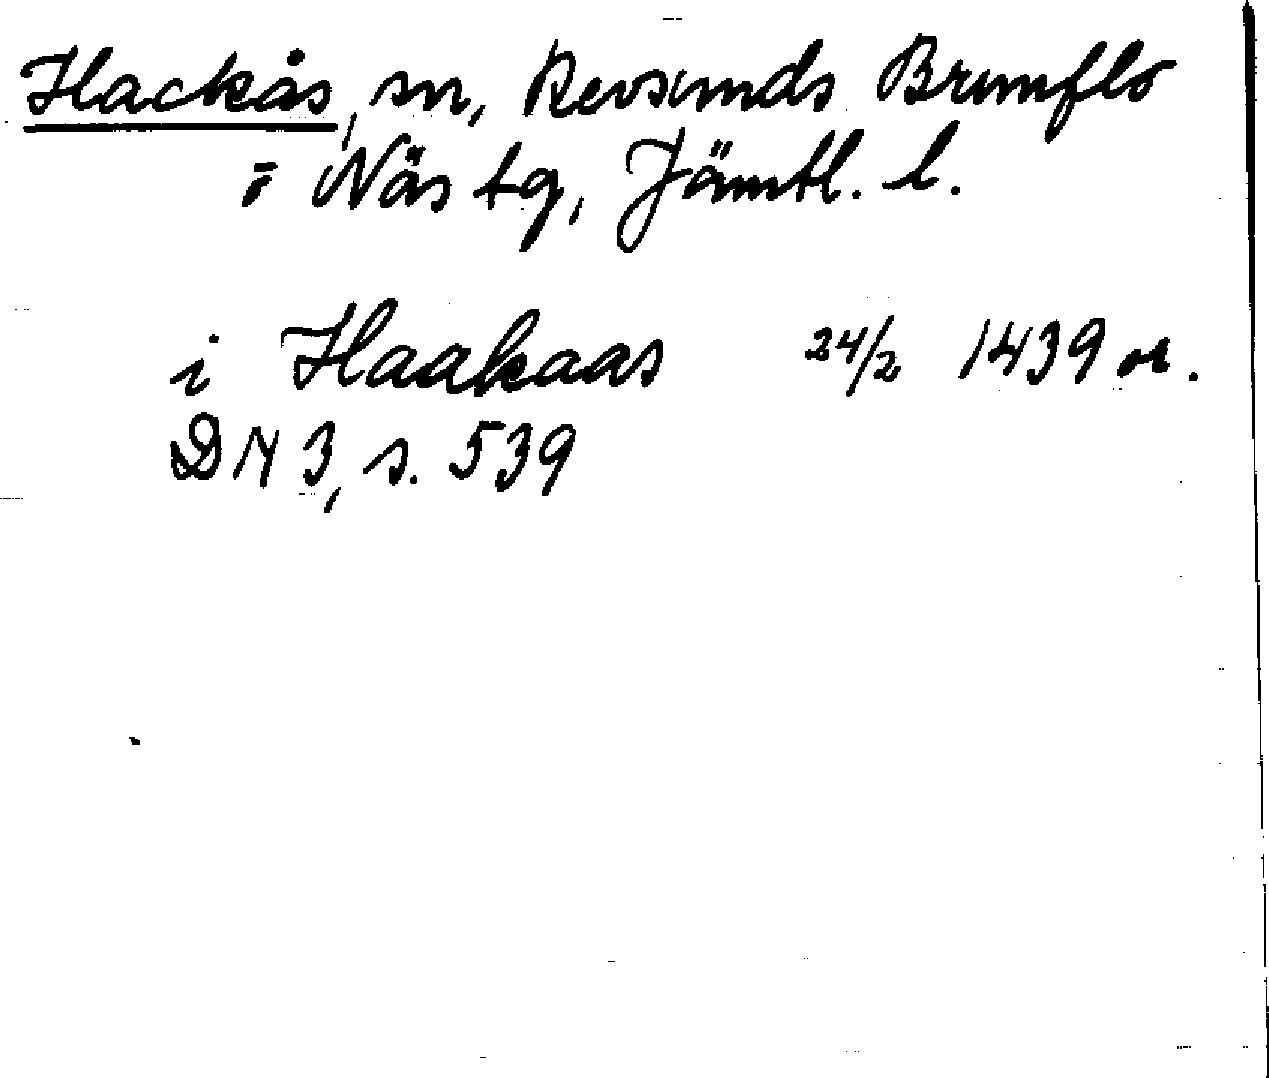 Hackås, sn, Revsunds Brunflo
o Näs tg, Jämtl. l.
i Haakaas 24/2 1439 or.
DN 3, s. 539